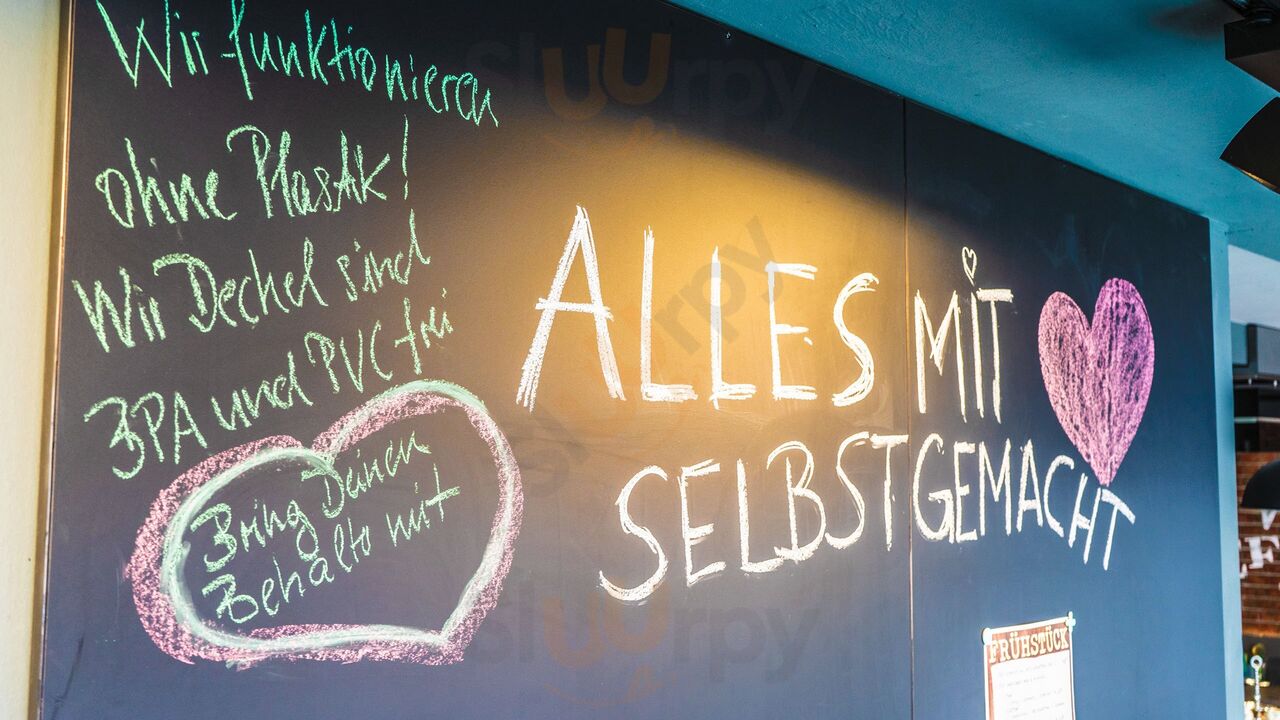 Wir funktionieren
ohne Plastik!
Wir Deckel sind
BPA und PVC frei
Bring Deinen
Behälto mit
ALLES MIT
SELBSTGEMACHT
FRÜHSTÜCK
Sluurpy
Sluurpy
Sluurpy